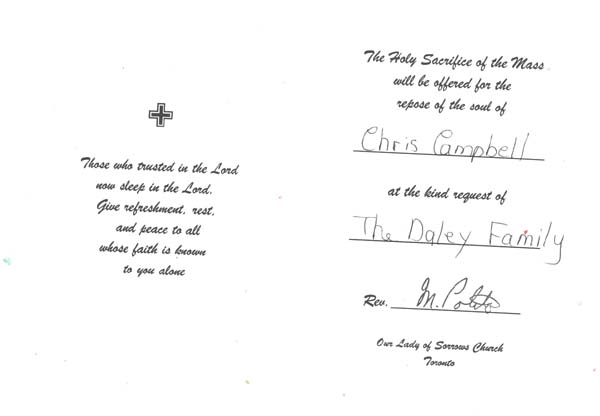 Those who trusted in the Lord
now sleep in the Lord,
Give refreshment, rest,
and peace to all
whose faith is known
to you alone
The Holy Sacrifice of the Mass
will be offered for the
repose of the soul of
Chris Campbell
at the kind request of
The Daley Family
Rev. M.
Our Lady of Sorrows Church
Toronto